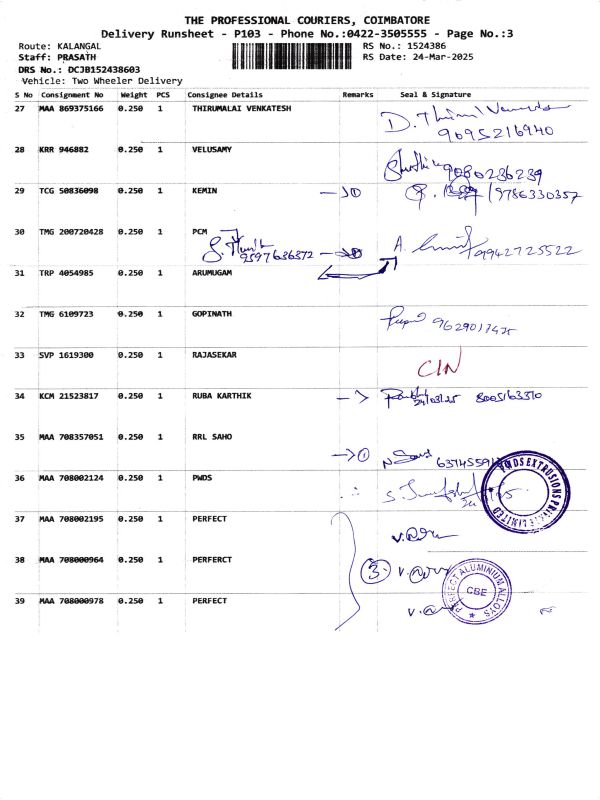 THE PROFESSIONAL COURIERS, COIMBATORE
Delivery Runsheet - P103 - Phone No.:0422-3505555 - Page No.:3
Route: KALANGAL RS No.: 1524386
Staff: PRASATH RS Date: 24-Mar-2025
DRS No.: DCJB152438603
Vehicle: Two Wheeler Delivery
S No Consignment No Weight PCS Consignee Details Remarks Seal & Signature
27 MAA 869375166 0.250 1 THIRUMALAI VENKATESH
9095216940
28 KRR 946882 0.250 1 VELUSAMY
9080236239
29 TCG 50836098 0.250 1 KEMIN 9786330357
30 TMG 200720428 0.250 1 PCM
9597636372 9942725522
31 TRP 4054985 0.250 1 ARUMUGAM
32 TMG 6109723 0.250 1 GOPINATH
33 SVP 1619300 0.250 1 RAJASEKAR
CIN
34 KCM 21523817 0.250 1 RUBA KARTHIK
24/03/25
35 MAA 708357051 0.250 1 RRL SAHO
36 MAA 708002124 0.250 1 PWDS
PWDS EXTRUSIONS PRIVATE LIMITED
37 MAA 708002195 0.250 1 PERFECT
38 MAA 708000964 0.250 1 PERFERCT 3
PERFECT ALUMINIUM ALLOYS
CBE
39 MAA 708000978 0.250 1 PERFECT